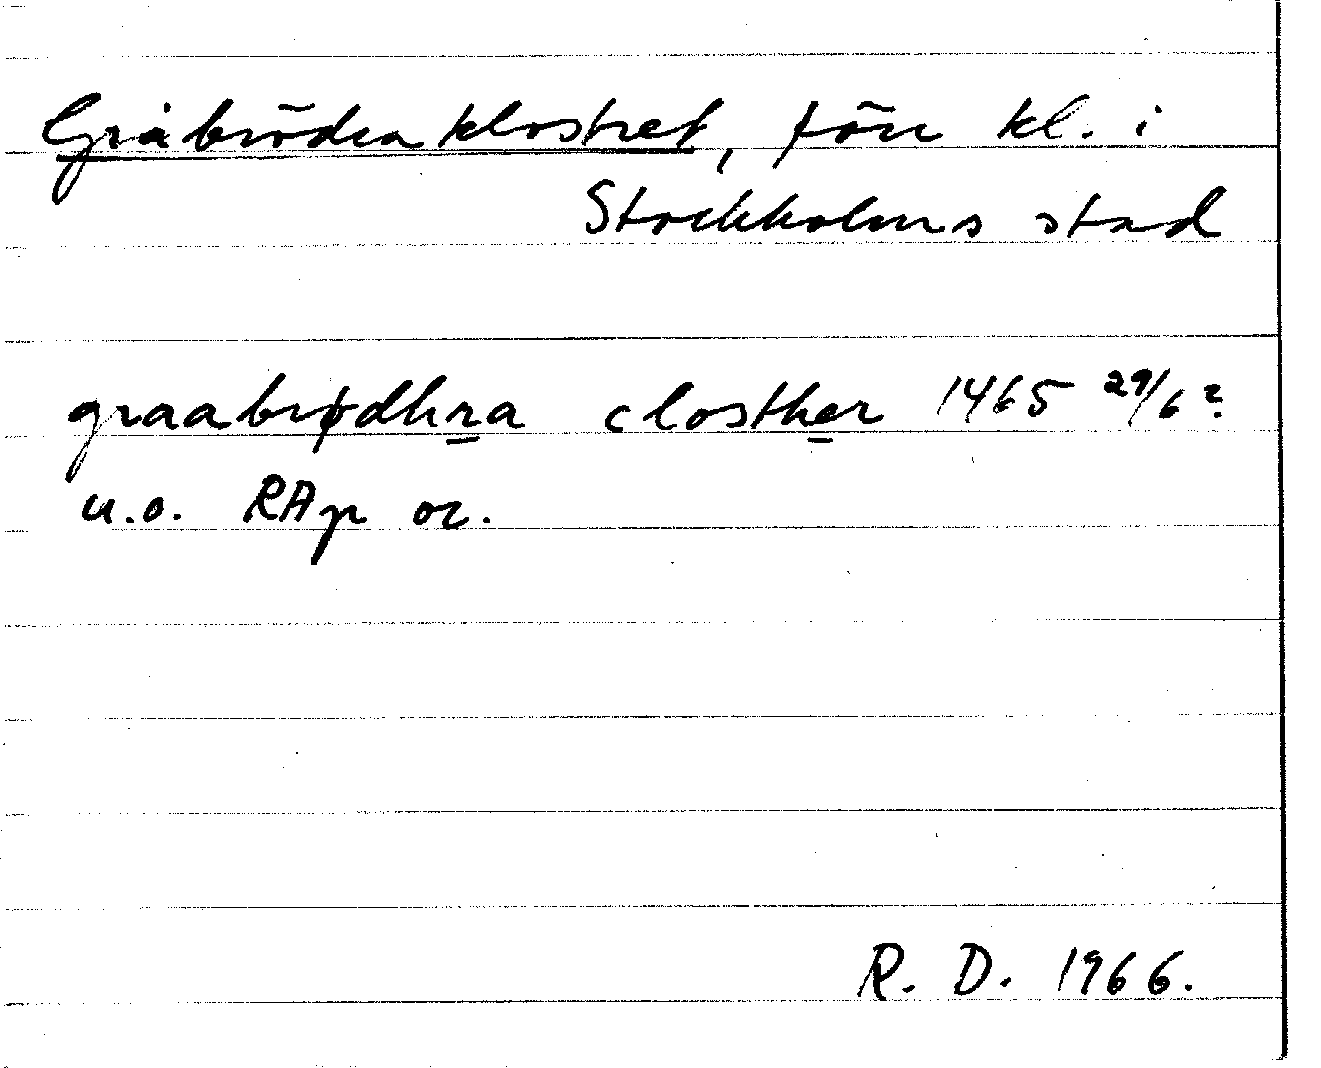 Gråbrödraklostret, förr kl. i
Stockholms stad
graabrødhra closther 1465 29/6?
u.o. RAp or.
R. D. 1966.